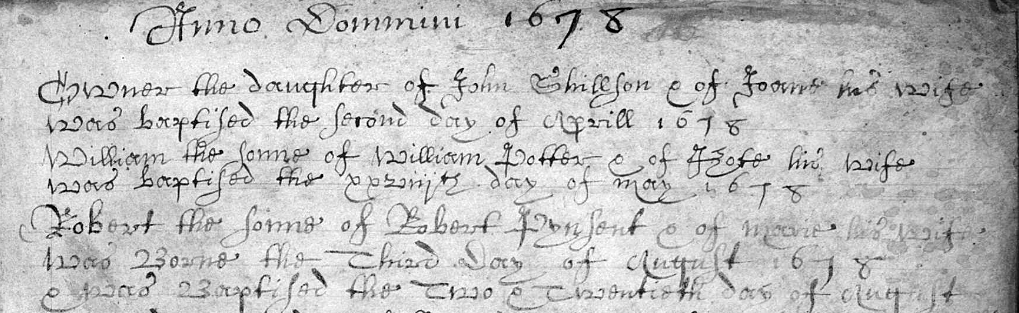 Anno Dommini 1678
the daughter of John Shillson & of Joane his wife
was baptised the second day of Aprill 1678
William the sonne of William Potter & of his wife
was baptised the xxviijth day of may 1678
Robert the sonne of Robert Pynsent & of marie his wife
was Borne the Third Day of August 1678
& was Baptised the Two & Twentieth day of August